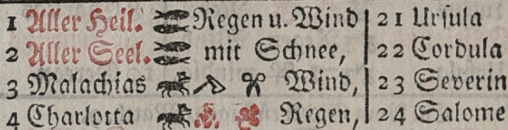 1 Aller Heil. Regen u. Wind | 21 Ursula
2 Aller Seel. mit Schnee, | 22 Cordula
3 Malachias Wind, | 23 Severin
4 Charlotta Regen, | 24 Salome